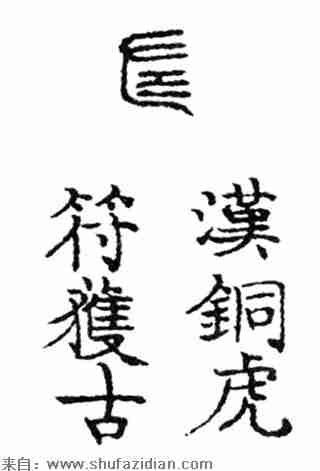 漢銅虎
符獲古
来自：www.shufazidian.com